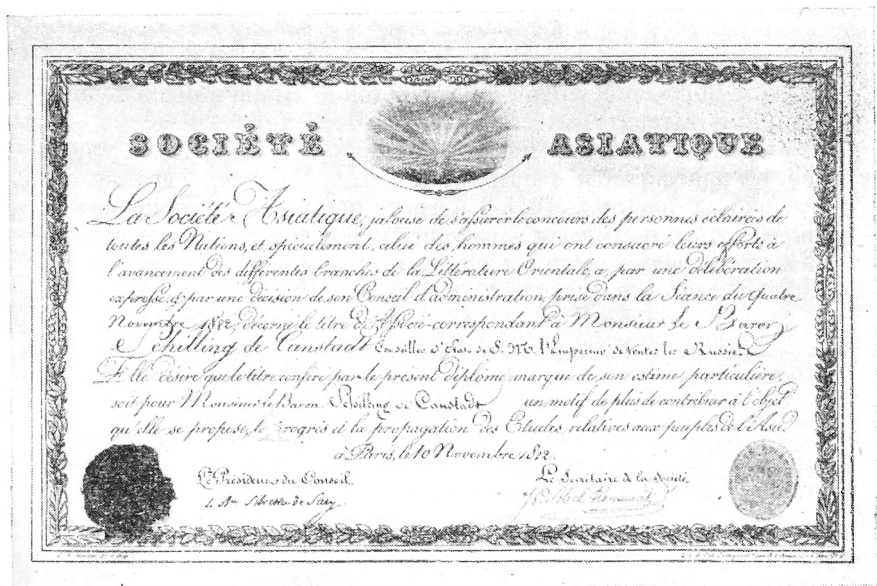 SOCIÉTÉ ASIATIQUE
La Société Asiatique, jalouse de s'assurer le concours des personnes éclairées de
toutes les Nations, et spécialement celui des hommes qui ont consacré leurs efforts à
l'avancement des différentes branches de la Littérature Orientale, a, par une délibération
expresse, & par une décision de son Conseil d'administration, prise dans la Séance du quatre
Novembre 1822, décerné le titre d'Associé-correspondant à Monsieur Le Baron
Schilling de Canstadt Conseiller d'État de S. M. l'Empereur de toutes les Russies
Elle désire que le titre conféré par le présent diplôme, marque de son estime particulière,
soit pour Monsieur le Baron Schilling de Canstadt un motif de plus de contribuer à l'objet
qu'elle se propose, le progrès et la propagation des Etudes relatives aux peuples de l'Asie
à Paris, le 10 Novembre 1822.
Le Président du Conseil. Le Secrétaire de la Société.
Silvestre de Sacy